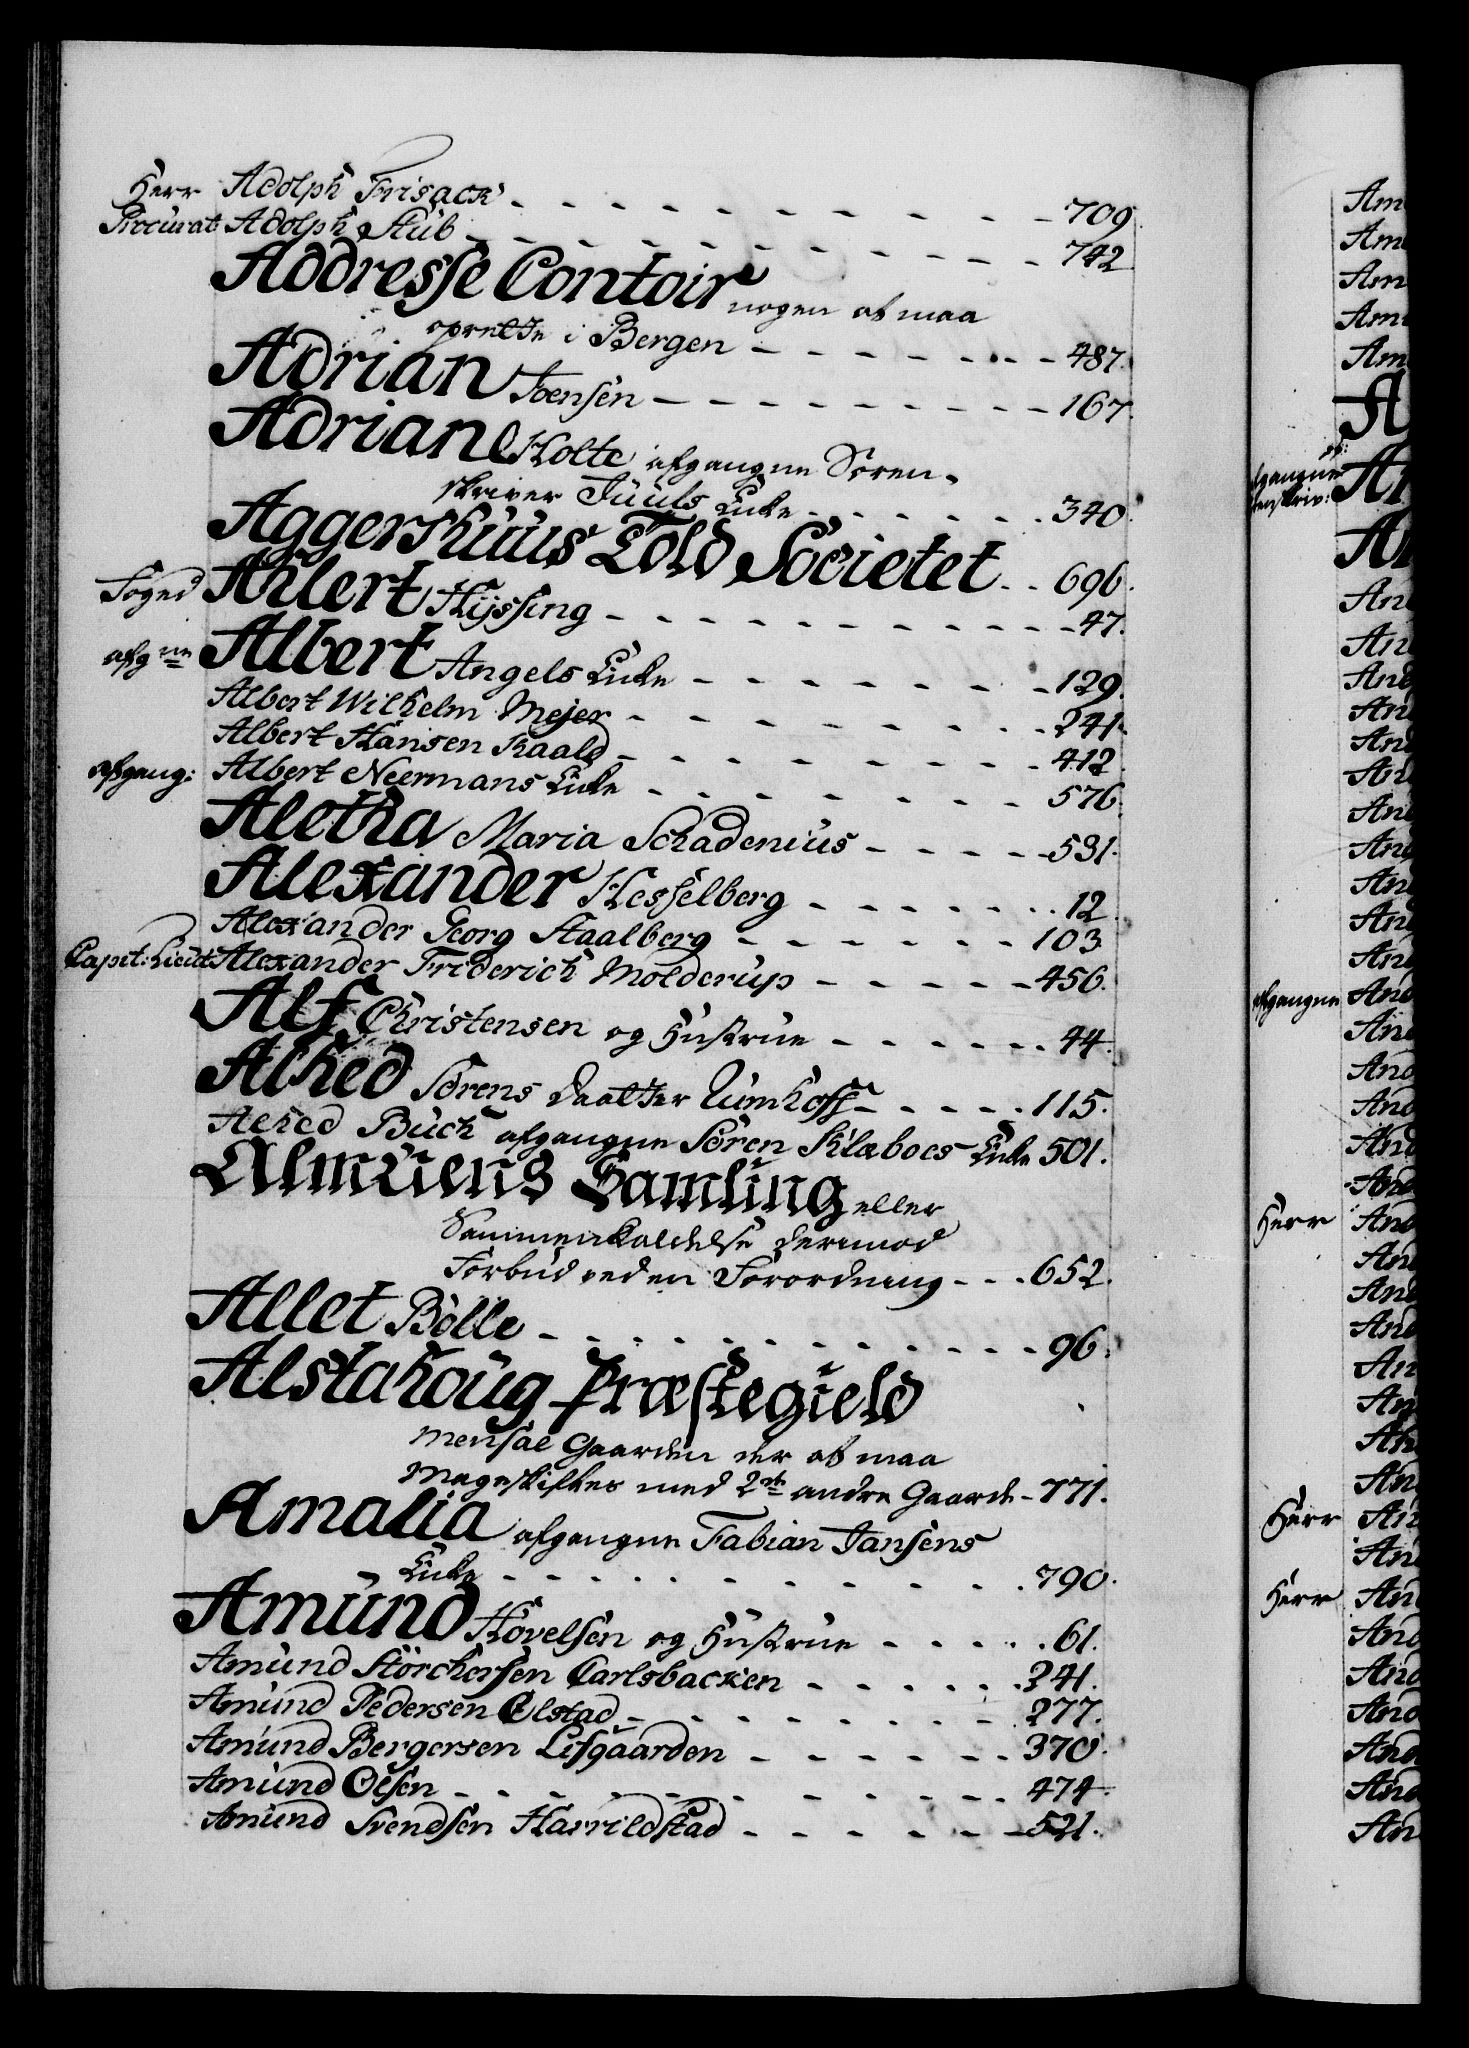 Herr Adolph Frisack - - - 709
Procurat Adolph Stub - - - 742
Addresse Contoir nogen at maa
oprette i Bergen - - - 487.
Adrian Joensen - - - 167.
Adriane Holte afgangne Soren-
skriver Juuls Enke - - - 340.
Aggershuus Told Societet - - 696.
Foged Ahlert Hyssing - - - 47.
afgne Albert Angels Enke - - - 129.
Albert Wilhelm Mejer - - - 241.
Albert Hansen Kaald - - - 412.
afgang: Albert Neermans Enke - - - 576.
Aletha Maria Schadenius - - - 531.
Alexander Hesselberg - - - 12.
Alexander Georg Staalberg - - - 103
Capit: Lieut: Alexander Friderich Molderup - - - 456.
Alf Christensen og Hustrue - - - 44.
Alhed Sörens Daatter Rumhoff - - - 115.
Alhed Buch afgangne Sören Klæboes Enke 501.
Almuens Samling eller
Sammenkaldelse dermod
Forbud ved en Forordning - - - 652.
Allet Bölle - - - 96.
Alstahoug Præstegield
Mensal Gaarden der at maa
Mageskiftes med 2de andre Gaarde - 771.
Amalia afgangne Fabian Jansens
Enke - - - 790.
Amund Hovelsen og Hustrue - - - 61.
Amund Störchersen Carlsbacken - - - 241.
Amund Pedersen Elstad - - - 277.
Amund Bergersen Lisgaarden - - - 370.
Amund Olsen - - - 474.
Amund Svendsen Harrildstad - - - 521.